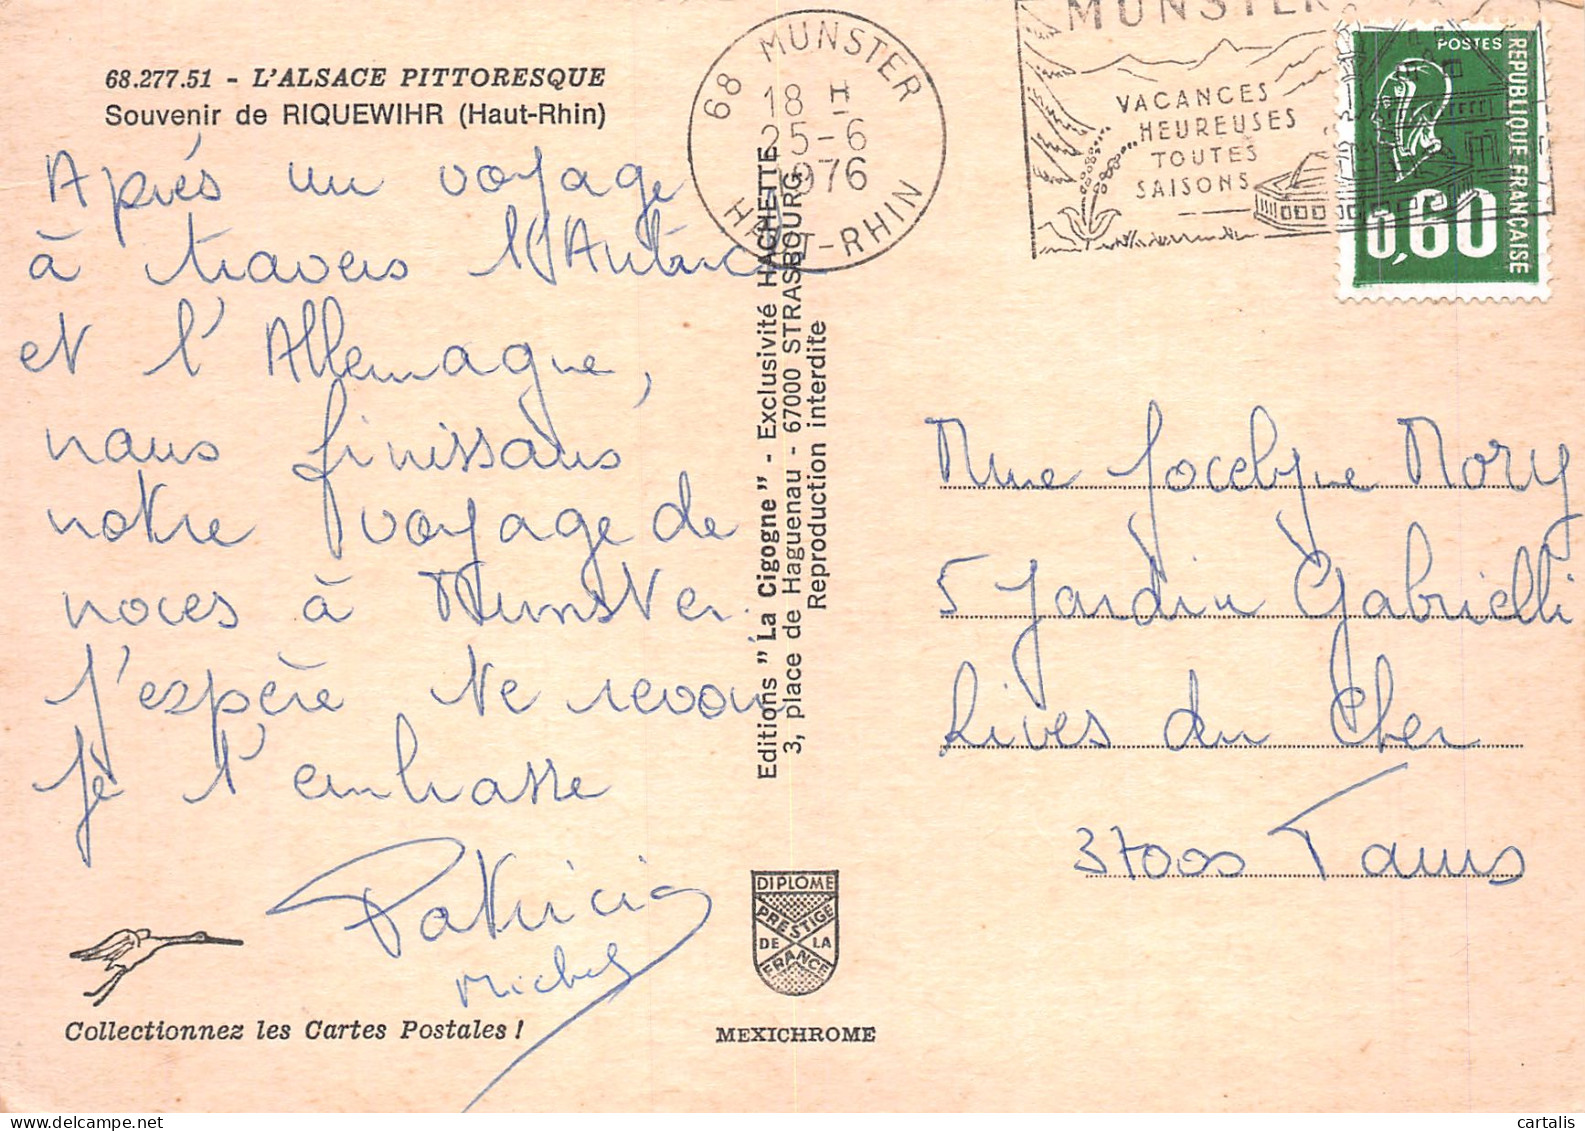 68.277.51 - L'ALSACE PITTORESQUE
Souvenir de RIQUEWIHR (Haut-Rhin)
Après un voyage
à travers l'Autriche
et l'Allemagne,
nous finissons
notre voyage de
noces à Munster.
J'espère te revoir
Je t'embrasse
Patricia
Michel
Collectionnez les Cartes Postales !
Editions "La Cigogne" - Exclusivité HACHETTE
3, place de Haguenau - 67000 STRASBOURG
Reproduction interdite
DIPLOME
PRESTIGE
DE LA
FRANCE
MEXICHROME
68 MUNSTER
18 H
25-6
1976
HAUT-RHIN
MUNSTER
VACANCES
HEUREUSES
TOUTES
SAISONS
POSTES
REPUBLIQUE FRANÇAISE
0,60
Mme Jocelyne Mory
5 Jardin Gabrielli
Rives du Cher
37000 Tours
cartalis